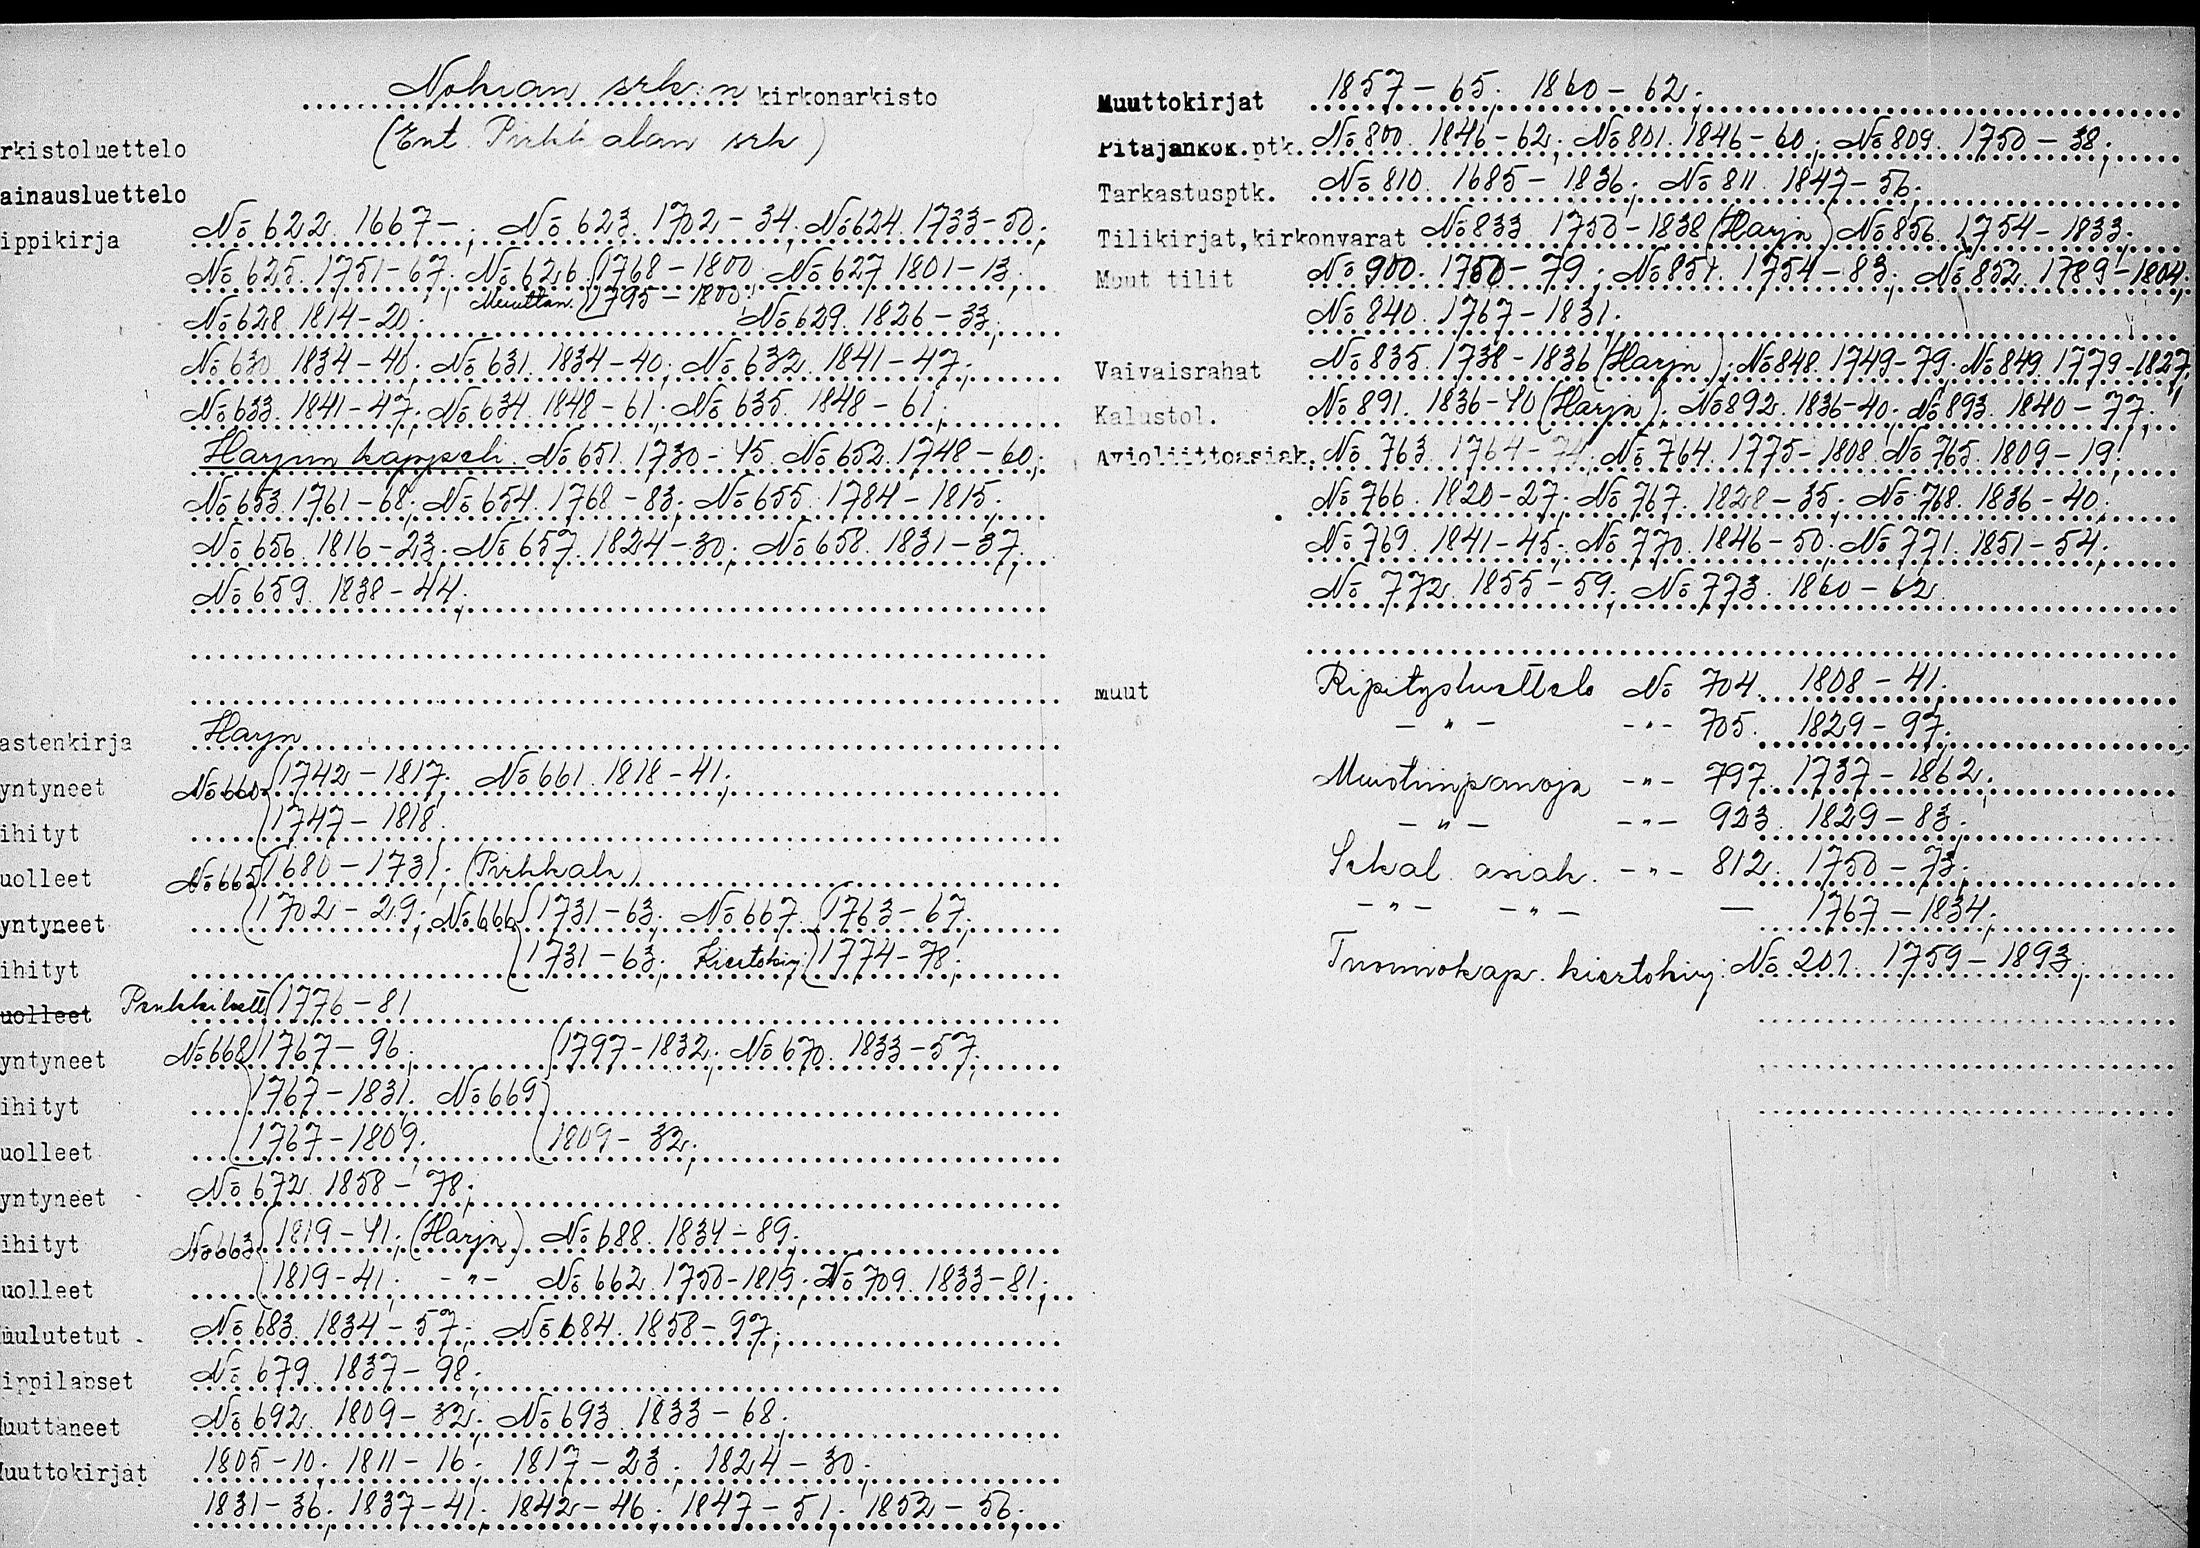 Nokian srk:n kirkonarkisto
(Ent. Pirkkalan srk)
rkistoluettelo
ainausluettelo
ippikirja No 622. 1667-; No 623. 1702-34; No 624. 1733-50;
No 625. 1751-67; No 626. 1768-1800; No 627. 1801-13;
Muuttan. 1795-1800;
No 628. 1814-20; No 629. 1826-33;
No 630. 1834-40; No 631. 1834-40; No 632. 1841-47;
No 633. 1841-47; No 634. 1848-61; No 635. 1848-61;
Harjun kappeli. No 651. 1730-45. No 652. 1748-60;
No 653. 1761-68; No 654. 1768-83; No 655. 1784-1815;
No 656. 1816-23; No 657. 1824-30; No 658. 1831-37;
No 659. 1838-44;
astenkirja Harjn
yntyneet No 660 1742-1817; No 661. 1818-41;
ihityt 1747-1818.
uolleet No 665 1680-1731; (Pirkkala)
yntyneet 1702-29; No 666 1731-63; No 667. 1763-67;
ihityt 1731-63; Kiertokirj. 1774-78;
uolleet Penkkiluett. 1776-81
yntyneet No 668 1767-96; 1797-1832; No 670. 1833-57;
ihityt 1767-1831. No 669
uolleet 1767-1809; 1809-32;
yntyneet No 672. 1858-78;
ihityt No 663 1819-41; (Harjn) No 688. 1834-89;
uolleet 1819-41; -"- No 662. 1750-1819; No 709. 1833-81;
uulutetut No 683. 1834-57; No 684. 1858-97;
ippilapset No 679. 1837-98;
uuttaneet No 692. 1809-32; No 693. 1833-68;
uuttokirjat 1805-10; 1811-16; 1817-23; 1824-30;
1831-36; 1837-41; 1842-46; 1847-51; 1852-56;
Muuttokirjat 1857-65; 1860-62;
Pitäjänkok.ptk. No 800. 1846-62; No 801. 1846-60; No 809. 1750-38;
Tarkastusptk. No 810. 1685-1836; No 811. 1847-56;
Tilikirjat, kirkonvarat No 833 1750-1838 (Harjn) No 856. 1754-1833;
Muut tilit No 900. 1750-79; No 851. 1754-83; No 852. 1789-1804;
No 840. 1767-1831;
Vaivaisrahat No 835. 1738-1836 (Harjn); No 848. 1749-79. No 849. 1779-1827;
Kalustol. No 891. 1836-40 (Harjn). No 892. 1836-40; No 893. 1840-77;
Avioliittoasiak. No 763. 1764-74; No 764. 1775-1808. No 765. 1809-19;
No 766. 1820-27; No 767. 1828-35; No 768. 1836-40;
No 769. 1841-45; No 770. 1846-50; No 771. 1851-54;
No 772. 1855-59; No 773. 1860-62
muut Ripitysluettelo No 704. 1808-41;
-"- -"- 705. 1829-97;
Muistiinpanoja -"- 797. 1737-1862;
-"- -"- 923. 1829-83;
Sekal. asiak. -"- 812. 1750-73;
-"- -"- — 1767-1834;
Tuomiokap. kiertokirj. No 201. 1759-1893;